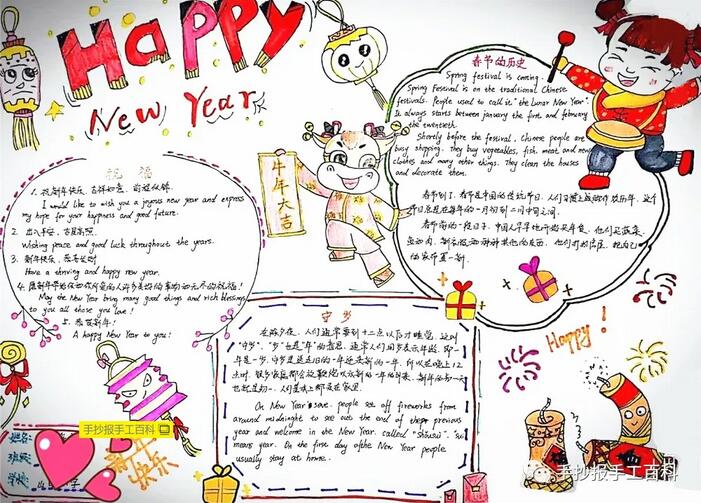 Happy
New Year
春节的历史
Spring festival is coming.
Spring Festival is on the traditional Chinese
festivals. People used to call it "the Lunar New Year".
It always starts between january the first and february
the twentieth.
Shorely before the festival, Chinese people are
busy shopping. They buy vegetables, fish, meat and new
clothes and many other things. They clean the houses
and decorate them.
春节到了.春节是中国的传统节日.人们习惯上
节日总是在每年的一月初到二月中旬之间.
春节前的一段日子,中国人
的家布置一新.
牛年大吉
祝福
1. 祝新年快乐,吉祥如意,前程似锦.
I would like to wish you a joyous new year and express
my hope for your happiness and good future.
2.
Wishing peace and good luck throughout the years.
3. 新年快乐
Have a thriving and happy new year.
4. 愿新年带给你和你所爱的人许多美好的事物和无尽的祝福!
May the New Year bring many good things and rich blessings
to you all those you love!
5. 恭贺新年!
A happy New Year to you!
守岁
在除夕夜,人们通常要到十二点以后才睡觉,这叫
"守岁".
On New Year's eve, people set off fireworks from
around midnight to see out the end of the previous
year and welcome in the New Year, called "shousui". "Sui"
means year. On the first day of the New Year people
usually stay at home.
Happy!
手抄报手工百科
新年
快乐
手抄报手工百科